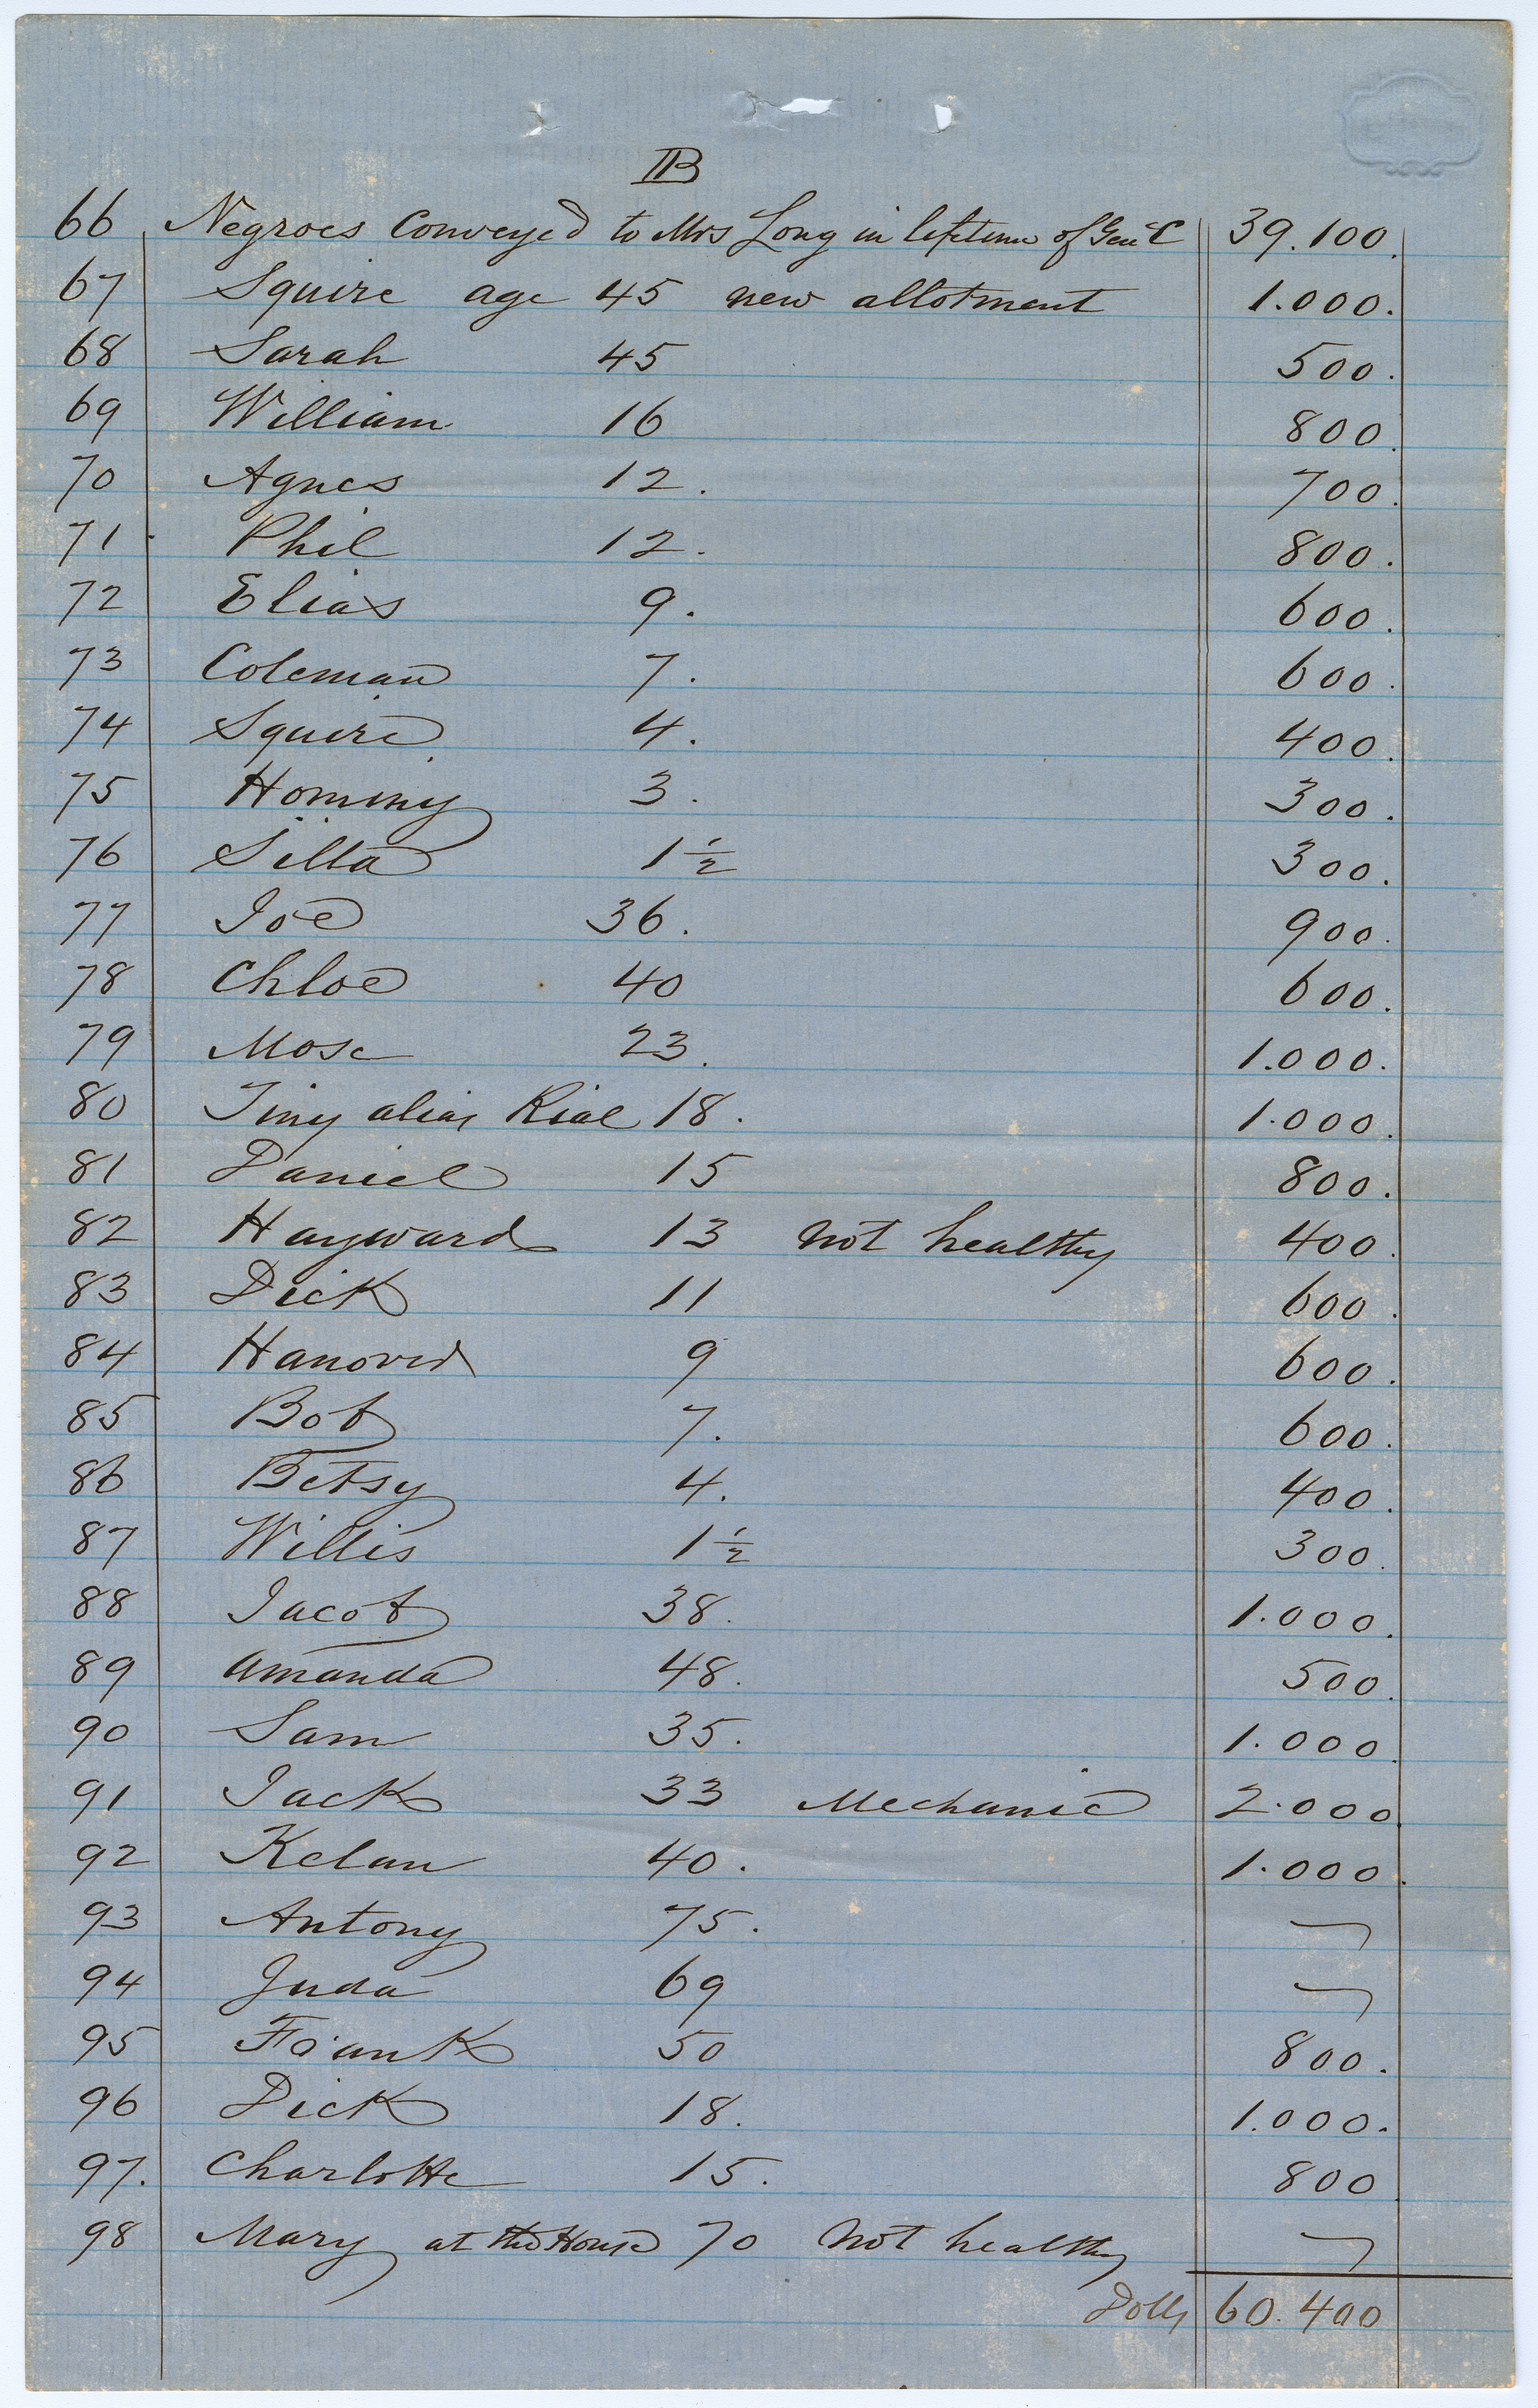 IIB
66 Negroes Conveyed to Mrs Long in lifetime of Genl C 39.100.
67 Squire age 45 new allotment 1.000.
68 Sarah 45 500.
69 William 16 800.
70 Agnes 12. 700.
71 Phil 12. 800.
72 Elias 9. 600.
73 Coleman 7. 600.
74 Squire 4. 400.
75 Hominy 3. 300.
76 Silla 1½ 300.
77 Joe 36. 900.
78 Chloe 40 600.
79 Mose 23. 1.000.
80 Tiny alias Rial 18. 1.000.
81 Daniel 15 800.
82 Hayward 13 not healthy 400.
83 Dick 11 600.
84 Hanover 9 600.
85 Bob 7. 600.
86 Betsy 4. 400.
87 Willis 1½ 300.
88 Jacob 38. 1.000.
89 Amanda 48. 500.
90 Sam 35. 1.000.
91 Jack 33 Mechanic 2.000.
92 Kelan 40. 1.000.
93 Antony 75. —
94 Juda 69 —
95 Frank 50 800.
96 Dick 18. 1.000.
97. Charlotte 15. 800
98 Mary at the House 70 Not healthy —
Dolls 60.400